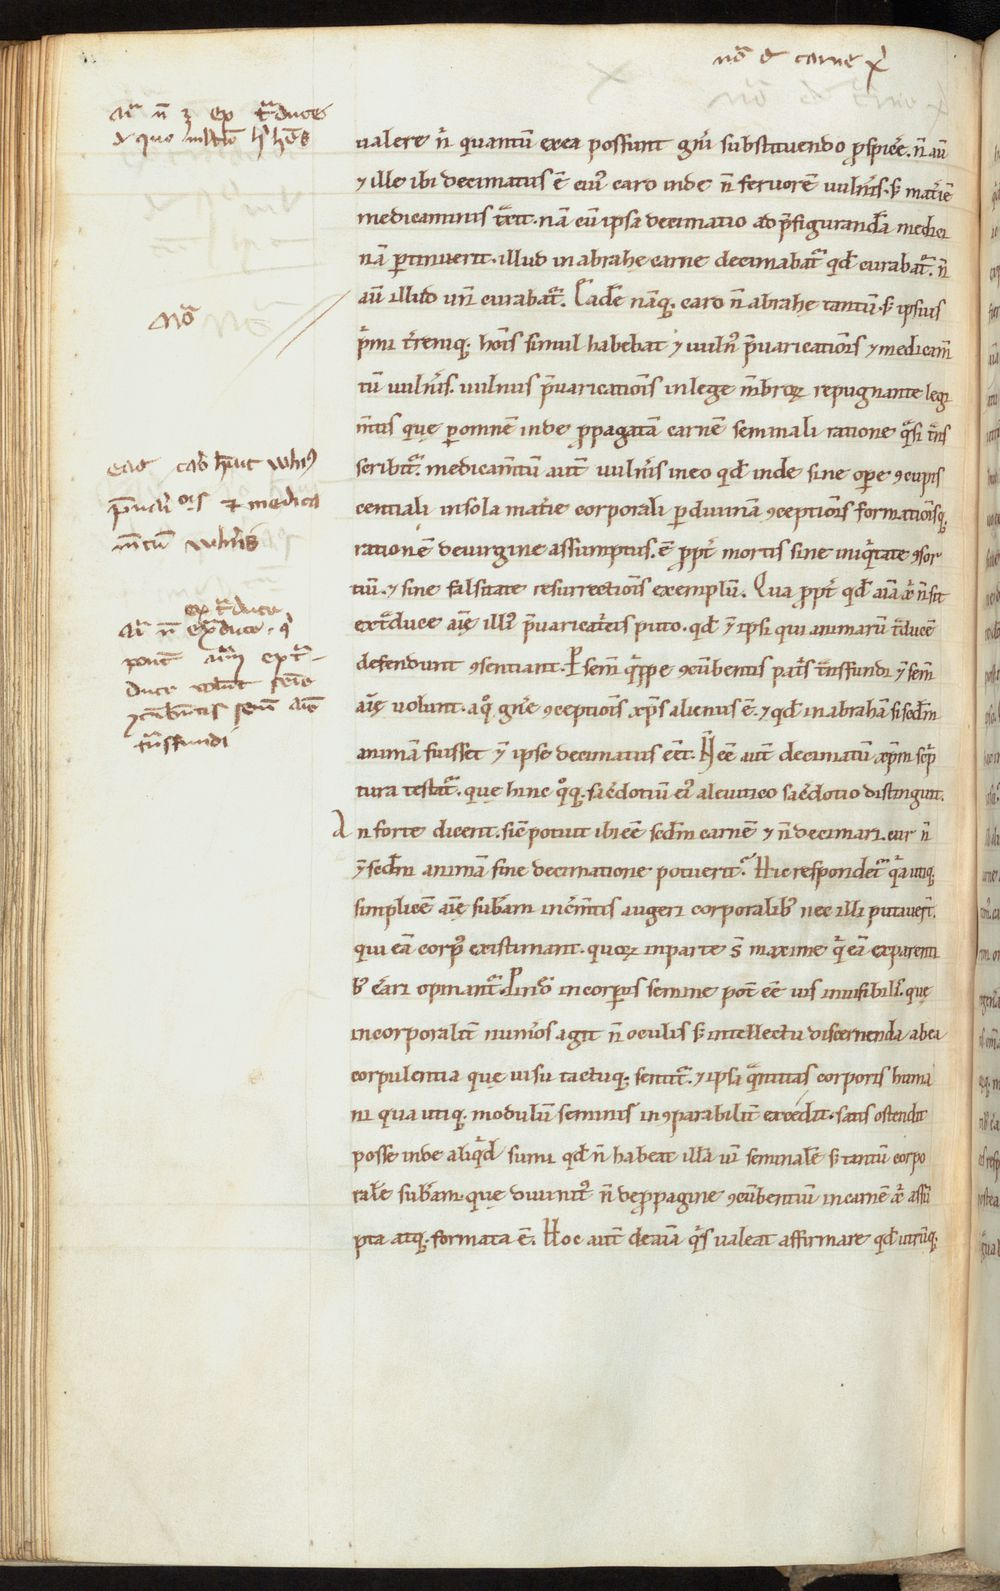 nō de carne χ̄
aīa n̄ ē ex t̄duce
valere n̄ quantū exea possunt gn̄i substituendo ꝓspicẽ. n̄ aū
⁊ ille ibi decimatus ē cuiꝰ caro inde n̄ feruorē uuln̄is. sꝫ mat̄iē
medicaminis t̄xit. nā cū ipsa decimatio ad p̄figurandā medici
nā ꝑtinuerit. illud in abrahe carne decimabat᷑ qđ curabat᷑. n̄
aū illud un̄ curabat᷑. Eadē nāqꝫ caro n̄ abrahę tantū. sꝫ ipsius
p̄mi t̄reniqꝫ hoīs simul habebat ⁊ uulnꝰ p̄uaricatiōis ⁊ medicam̄
tū uuln̄is. uulnus p̄uaricatiōis in lege m̄broꝝ repugnante legi
m̄tis quę ꝑ omnē inde ꝓpagatā carnē seminali ratione q̄si t̄ns
scribit᷑. medicam̄tum aut̄ uuln̄is in eo qđ inde sine oꝑe ꝯcupis
centiali in sola mat̄ie corporali ꝑ diuinā ꝯceptiōis formatiōisqꝫ
rationē de uirgine assumptus. ē ꝓpt̄ mortis sine iniq̇tate ꝯsor
tiū. ⁊ sine falsitate resurrectiōis exemplū. Qua ꝓpt̄ qđ aīa χ̄ n̄ sit
ex t̄duce aīę illiꝰ p̄uaricat̄cis puto. qđ ⁊̄ ipsi qui animarū t̄ducē
defendunt ꝯsentiant. P sem̄ q̇ppe ꝯcūbentis pat̄s t̄nsfundi ⁊̄ sem̄
aīę uolunt. a qͦ gn̄e ꝯceptiōis xp̄s alienus ē. ⁊ qđ in abrahā si sedm̄
animā fuisset ⁊̄ ipse decimatus eēt. N̄ eē aut̄ decimatū xp̄m sc̄p
tura testat᷑. quę hinc qͦqꝫ sac̄dotiū eiꝰ a leuitico sac̄dotio distinguit.
An forte dicent. sic potuit ibi eē sedm̄ carnē ⁊ n̄ decimari. cur n̄
⁊̄ sedm̄ animā sine decimatione potuerit? Hic respondet᷑ q̇a utiqꝫ
simplicē aīę subām incm̄tis augeri corporalibꝰ nec illi putauer̄t.
qui eā corpꝰ existimant. quoꝝ in parte s̄ maxime q̇ eā ex parenti
bꝰ c̄ari opinant᷑. Proī in corꝑis semine pōt eē uis inuisibilis quę
incorporalit̄ num̄os agit n̄ oculis sꝫ intellectu discernenda ab ea
corpulentia quę uisu tactuqꝫ sentit᷑. ⁊ ipsa q̄ntitas corporis huma
ni qua utiqꝫ modulū seminis in ꝯparabilit̄ excedit. satis ostendit
posse inde aliq̇d sumi qđ n̄ habeat illā uī seminalē sꝫ tantū corpo
ralē subām. quę diuinitꝰ n̄ de ꝓpagine ꝯcūbentiū in carnē χ̄ assū
pta atqꝫ formata ē. Hoc aut̄ de aīa q̇s ualeat affirmare qđ utrūqꝫ
Nōᷓ
ex t̄duce
t̄nsfundi